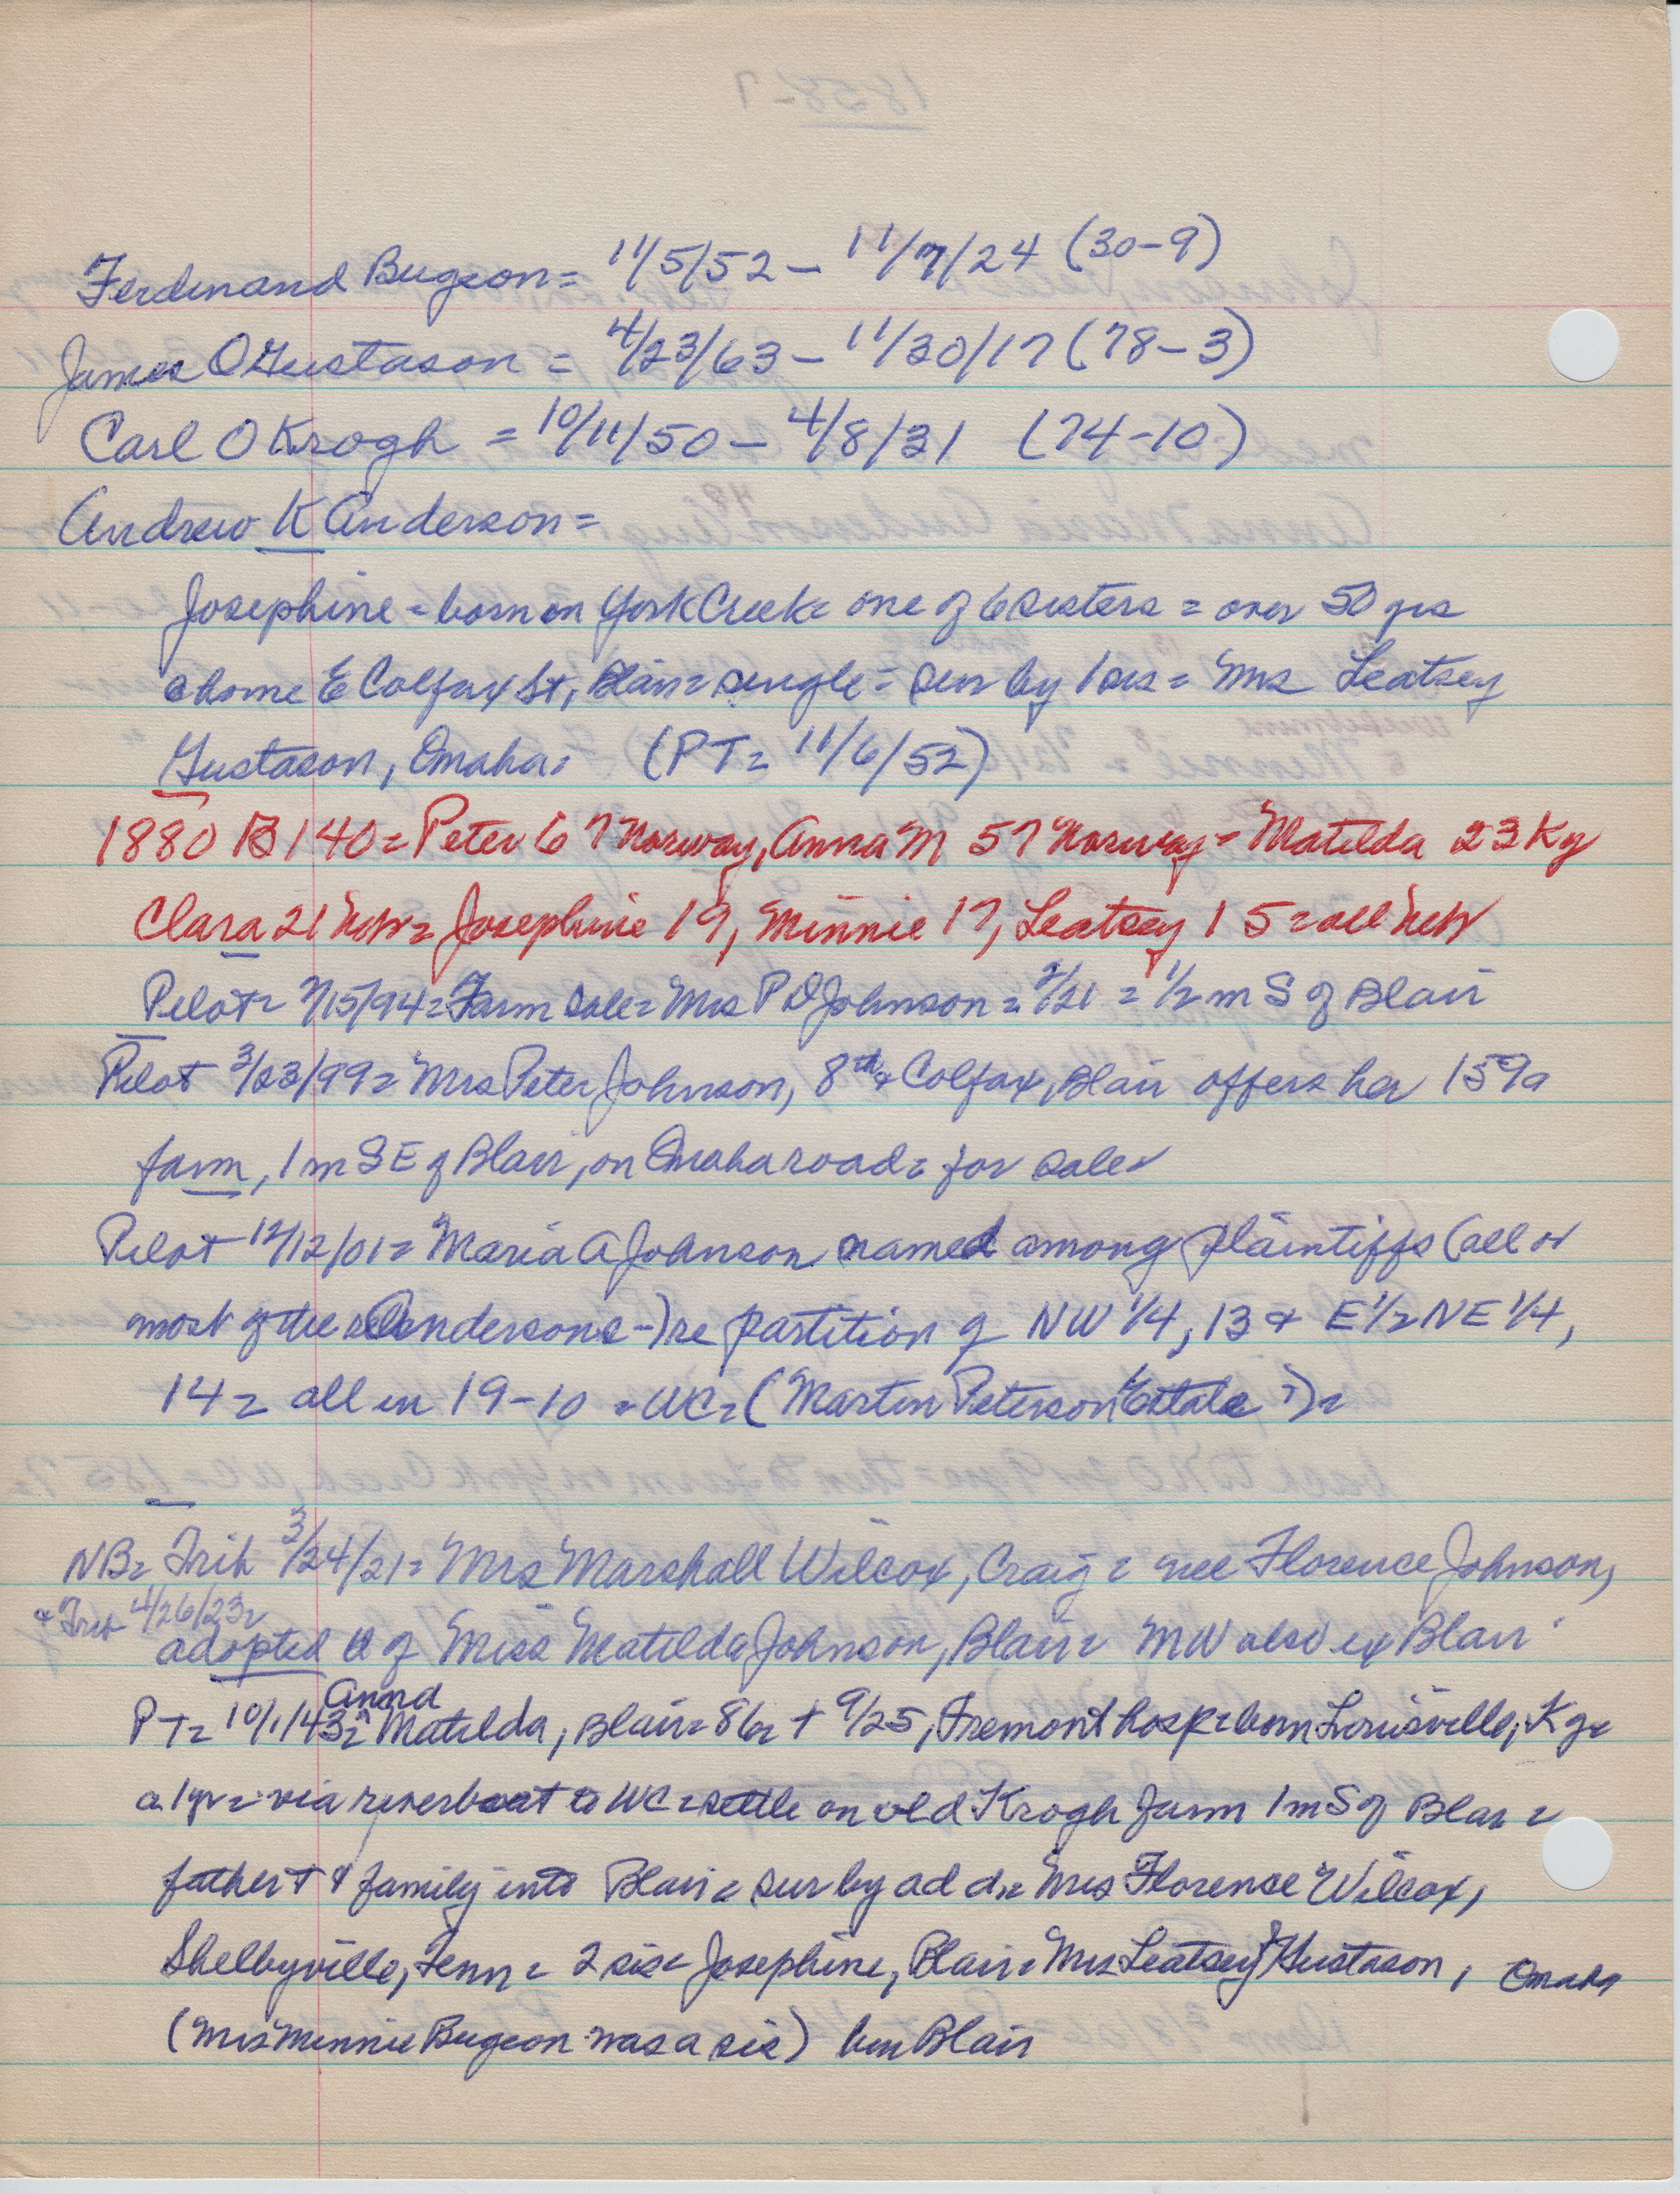 Ferdinand Bugeon = 11/5/52 - 11/7/24 (30-9)
James O Gustason = 4/23/63 - 11/30/17 (78-3)
Carl O Krogh = 10/11/50 - 4/8/31 (74-10)
Andrew K Anderson =
Josephine = born on York Creek = one of 6 sisters = over 50 yrs
home E Colfax St, Blair = single = sur by 1 sis = Mrs Leatsey
Gustason, Omaha = (PT = 11/6/52)
1880 B 140 = Peter 67 Norway, Anna M 57 Norway = Matilda 23 Ky
Clara 21 Neb = Josephine 19, Minnie 17, Leatsey 15 = all Neb
Pilot = 2/15/94 = Farm sale = Mrs P D Johnson = 2/21 = 1/2 m S of Blair
Pilot 3/23/99 = Mrs Peter Johnson, 8th & Colfax, Blair offers her 159a
farm, 1 m SE of Blair, on Omaha road = for sale
Pilot 12/12/01 = Maria A Johnson named among plaintiffs (all or
most of the Andersons-) re partition of NW 1/4, 13 & E 1/2 NE 1/4,
14 = all in 19-10 = WC = (Martin Peterson Estate ?) =
NB = Trib 3/24/21 = Mrs Marshall Wilcox, Craig = nee Florence Johnson,
& Trib 4/26/23 =
adopted d of Miss Matilda Johnson, Blair = MW also ex Blair
Anna
PT = 10/1/43 = ^ Matilda, Blair = 86 = + 9/25, Fremont hosp = born Louisville, Ky =
a 1 yr = via riverboat to WC = settle on old Krogh farm 1 m S of Blair =
father + & family into Blair = sur by ad d = Mrs Florence Wilcox,
Shelbyville, Tenn = 2 sis = Josephine, Blair = Mrs Leatsey Gustason, Omaha
(Mrs Minnie Bugeon was a sis) bur Blair